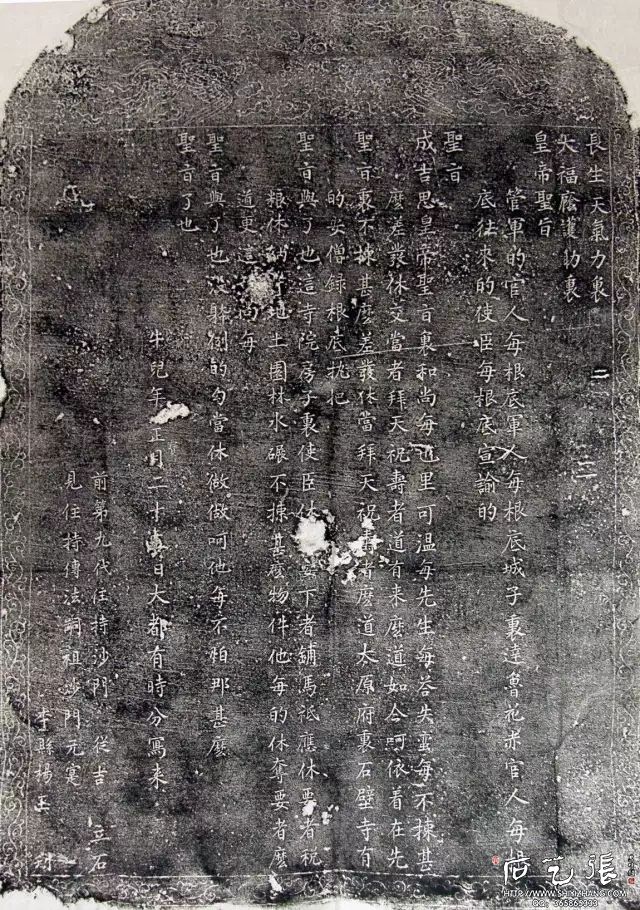 長生天氣力裏
大福廕護助裏
皇帝聖旨
管軍的官人每根底軍人每根底城子裏達魯花赤官人每根
底往來的使臣每根底宣諭的
聖旨
成吉思皇帝聖旨裏和尚每也里可溫每先生每荅失蠻每不揀甚
麼差發休交當者拜天祝壽者道有来麼道如今呵依着在先
聖旨裏不揀甚麼差發休當拜天祝壽者麼道太原府裏石壁寺有
的安僧録根底執把
聖旨與了也這寺院房子裏使臣休安下者鋪馬祗應休要者税
粮休納者地土園林水碾不揀甚麼物件他每的休奪要者麼
道更這和尚每
聖旨與了也没躰例的勾當休做做呵他每不怕那甚麼
聖旨了也
牛兒年正月二十日大都有時分寫来
前第九代住持沙門 從吉 立石
見住持傳法嗣祖沙門元 李縣楊玉
石艺張
HTTP://WWW.SHIYIZHANG.COM
QQ: 365865933